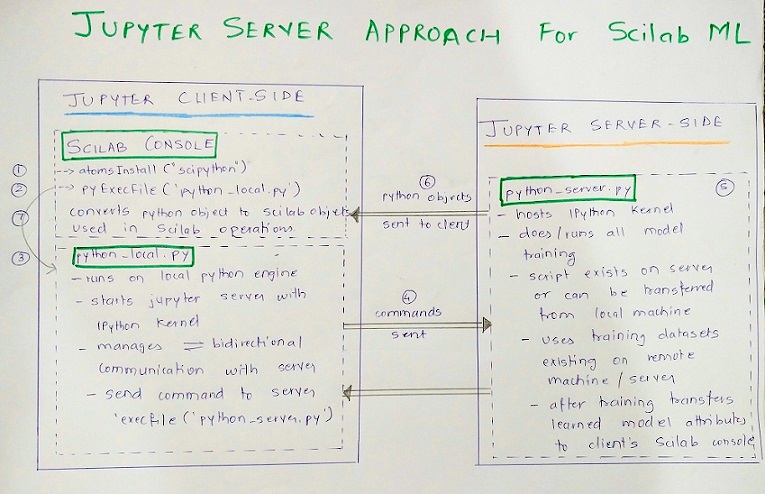 JUPYTER SERVER APPROACH For Scilab ML
JUPYTER CLIENT-SIDE
SCILAB CONSOLE
① --> atomsInstall ("scipython")
② --> pyExecFile ('python_local.py')
⑦ converts python object to scilab objects
used in Scilab operations
③ python_local.py
- runs on local python engine
- starts jupyter server with
IPython Kernel
- manages ⇌ bidirectional
communication with server
- send command to server
'execfile ('python_server.py')
⑥
python objects
sent to client
④
commands
sent
JUPYTER SERVER-SIDE
python_server.py ⑤
- hosts IPython Kernel
- does/runs all model
training
- script exists on server
or can be transferred
from local machine
- uses training datasets
existing on remote
machine/server
- after training transfers
learned model attributes
to client's Scilab console